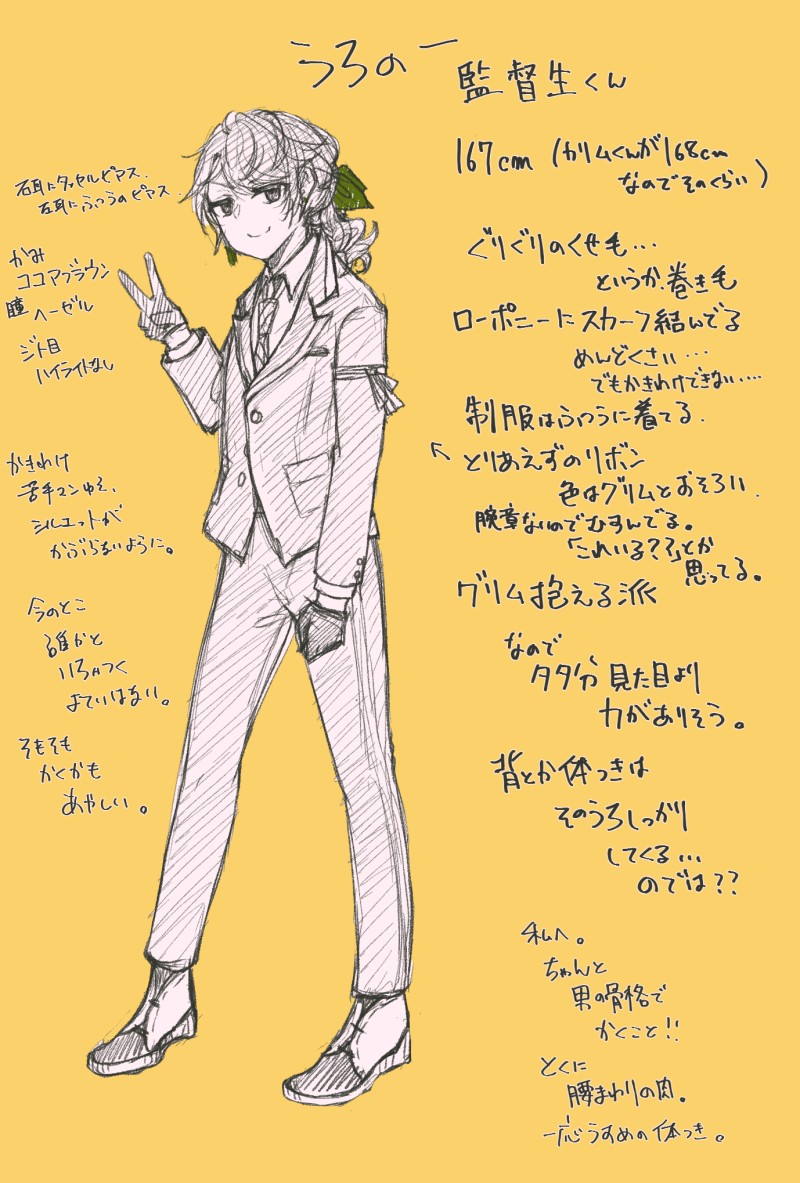 うろのー
監督生くん
167cm (カリムくんが168cm
なのでそのくらい)
ぐりぐりのくせ毛…
というか、巻き毛
ローポニーにスカーフ結んでる
めんどくさい…
でもかきわけできない…
制服はふつうに着てる。
←とりあえずのリボン
色はグリムとおそろい。
腕章ないのでむすんでる。
「これいる??」とか
思ってる。
グリム抱える派
なので
タタ分、見た目より
力がありそう。
背とか体つきは
そのうちしっかり
してくる…
のでは??
私へ。
ちゃんと
男の骨格で
かくこと!!
とくに
腰まわりの肉。
一応うすめの体つき。
右耳にタッセルピアス。
左耳にふつうのピアス。
かみ
ココアブラウン
瞳 ヘーゼル
ジト目
ハイライトなし
かきわけ
苦手マンゆえ、
シルエットが
かぶらないように。
今のとこ
誰かと
いちゃつく
よていはない。
そもそも
かくかも
あやしい。